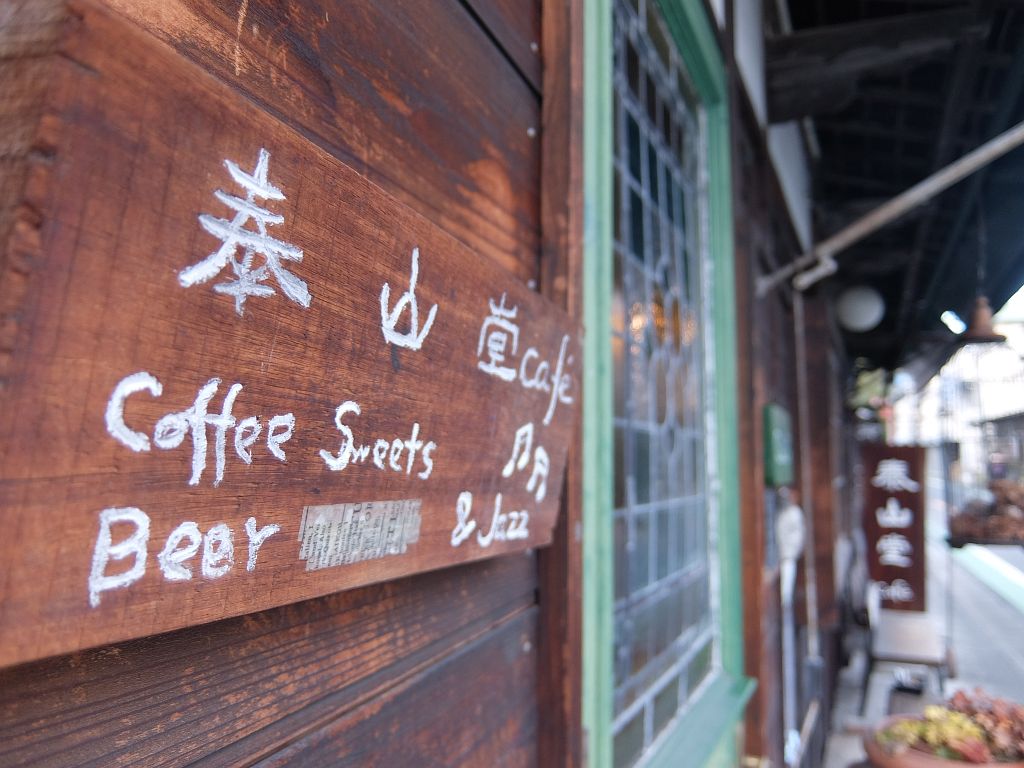 泰山堂café
Coffee Sweets
Beer & Jazz
泰山堂
Cafe